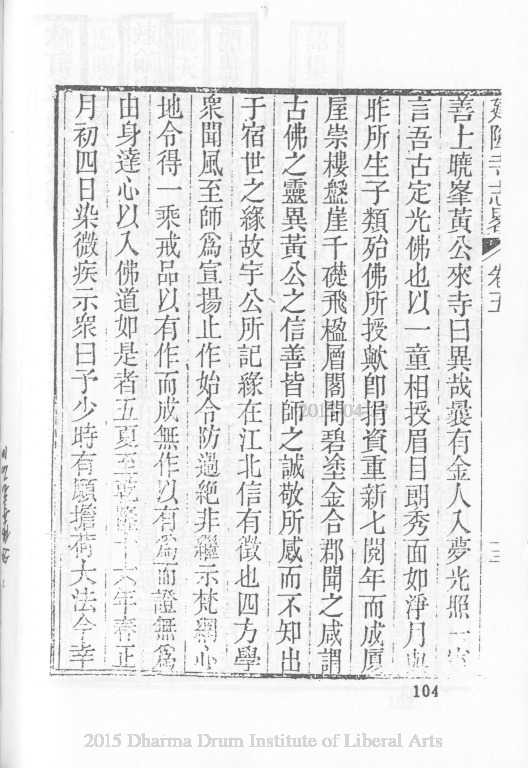 建隆寺志畧 卷五 十三
善上曉峯黃公來寺曰異哉曩有金人入夢光照一室
言吾古定光佛也以一童相授眉目朗秀面如淨月與
昨所生子類殆佛所授歟卽捐資重新七閱年而成厦
屋崇樓盤崖千礎飛楹層閣間碧塗金合郡聞之咸謂
古佛之靈異黃公之信善皆師之誠敬所感而不知出
于宿世之緣故宇公所記緣在江北信有徵也四方學
衆聞風至師爲宣揚止作始令防過絶非繼示梵網心
地令得一乘戒品以有作而成無作以有爲而證無爲
由身達心以入佛道如是者五夏至乾隆十六年春正
月初四日染微疾示衆曰予少時有願擔荷大法今幸
104
2015 Dharma Drum Institute of Liberal Arts